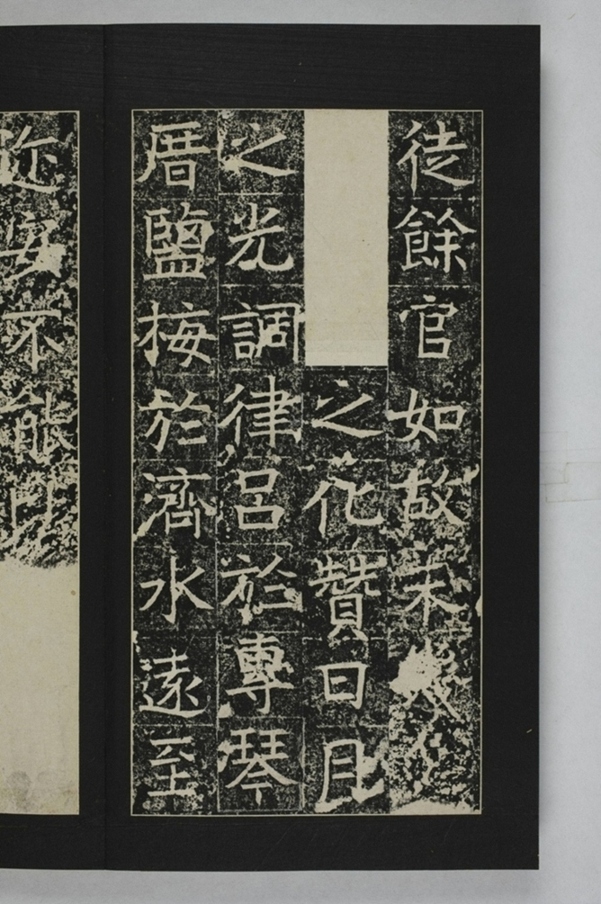 徒餘官如故未
之化贊日月
之光調律呂於專琴
厝鹽梅於濟水遠至
迩安不能